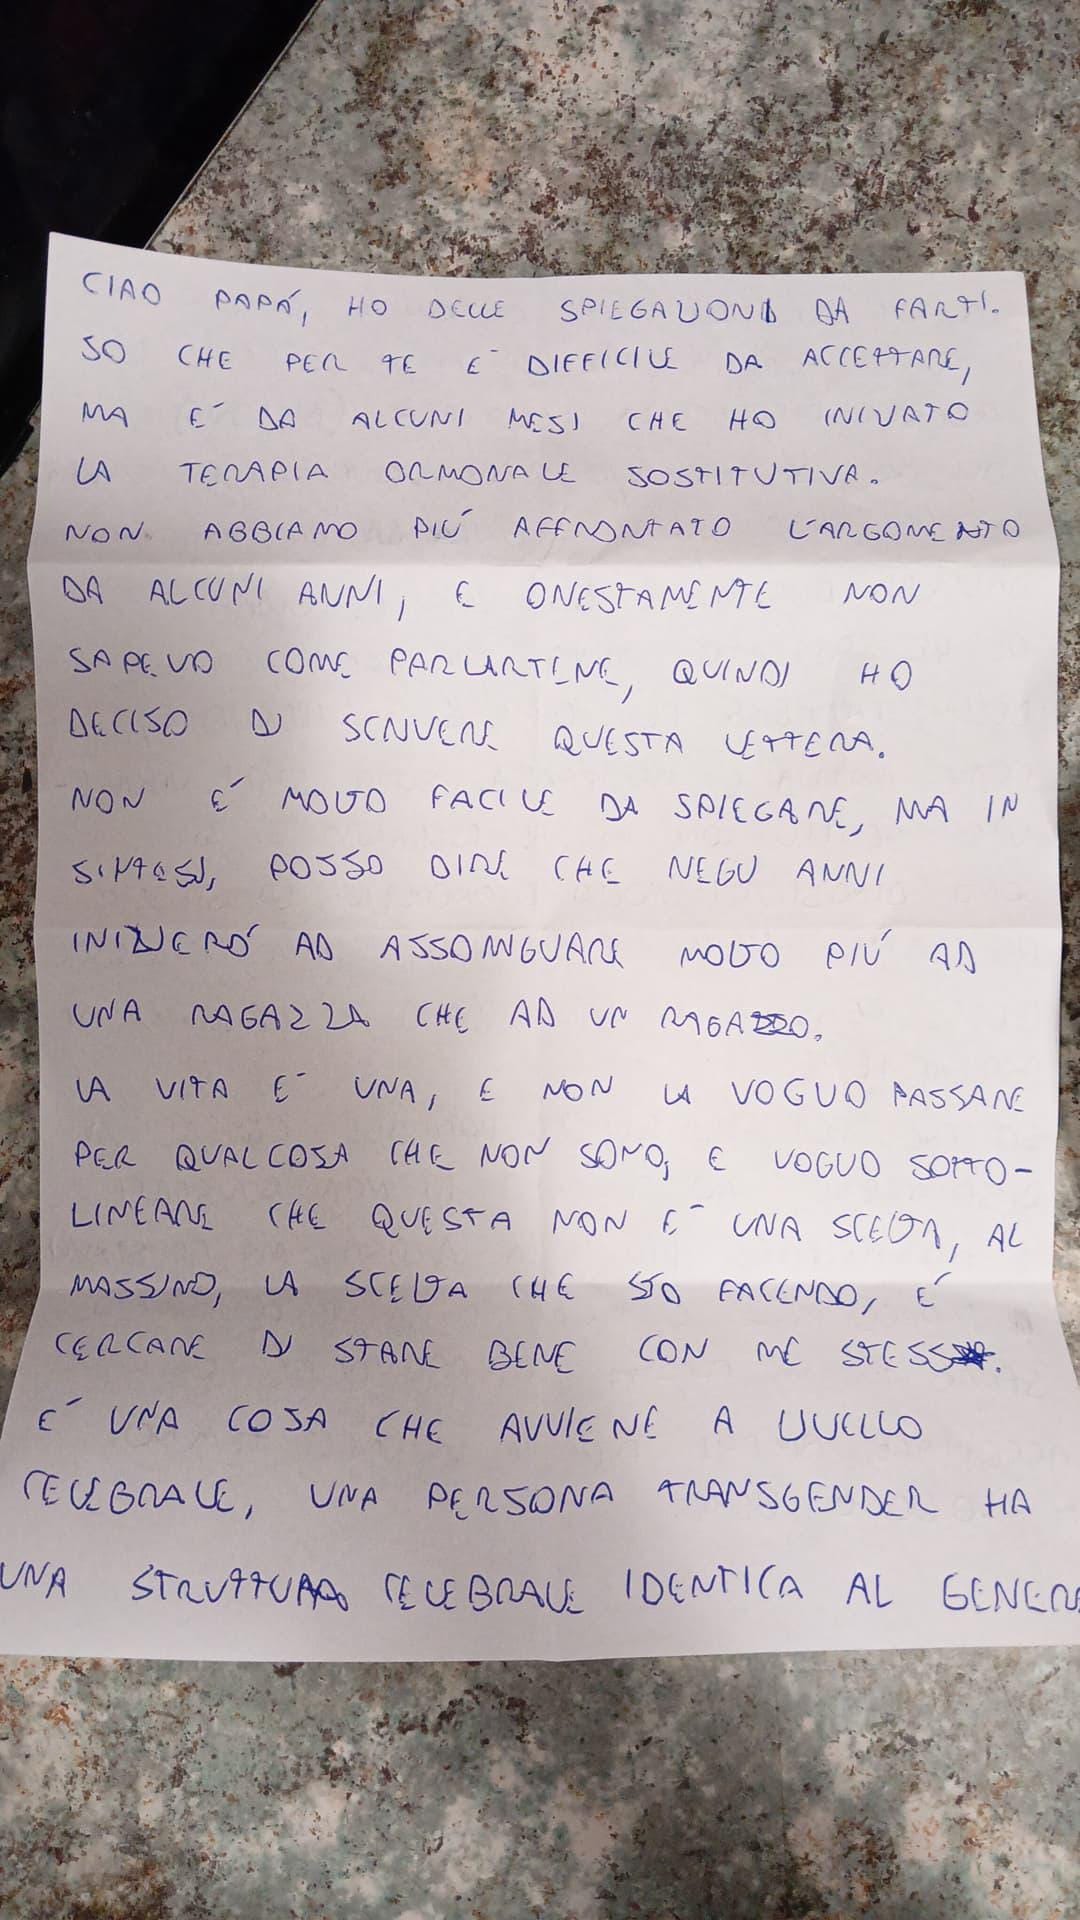 CIAO PAPÁ, HO DELLE SPIEGAZIONI DA FARTI.
SO CHE PER TE É DIFFICILE DA ACCETTARE,
MA É DA ALCUNI MESI CHE HO INIZIATO
LA TERAPIA ORMONALE SOSTITUTIVA.
NON ABBIAMO PIÚ AFFRONTATO L'ARGOMENTO
DA ALCUNI ANNI, E ONESTAMENTE NON
SAPEVO COME PARLARTENE, QUINDI HO
DECISO DI SCRIVERE QUESTA LETTERA.
NON É MOLTO FACILE DA SPIEGARE, MA IN
SINTESI, POSSO DIRE CHE NEGLI ANNI
INIZIERÓ AD ASSOMIGLIARE MOLTO PIÚ AD
UNA RAGAZZA CHE AD UN RAGAZZO.
LA VITA É UNA, E NON LA VOGLIO PASSARE
PER QUALCOSA CHE NON SONO, E VOGLIO SOTTO-
LINEARE CHE QUESTA NON É UNA SCELTA, AL
MASSIMO, LA SCELTA CHE STO FACENDO, É
CERCARE DI STARE BENE CON ME
É UNA COSA CHE AVVIENE A LIVELLO
CELEBRALE, UNA PERSONA TRANSGENDER HA
UNA STRUTTURA CELEBRALE IDENTICA AL GENERE